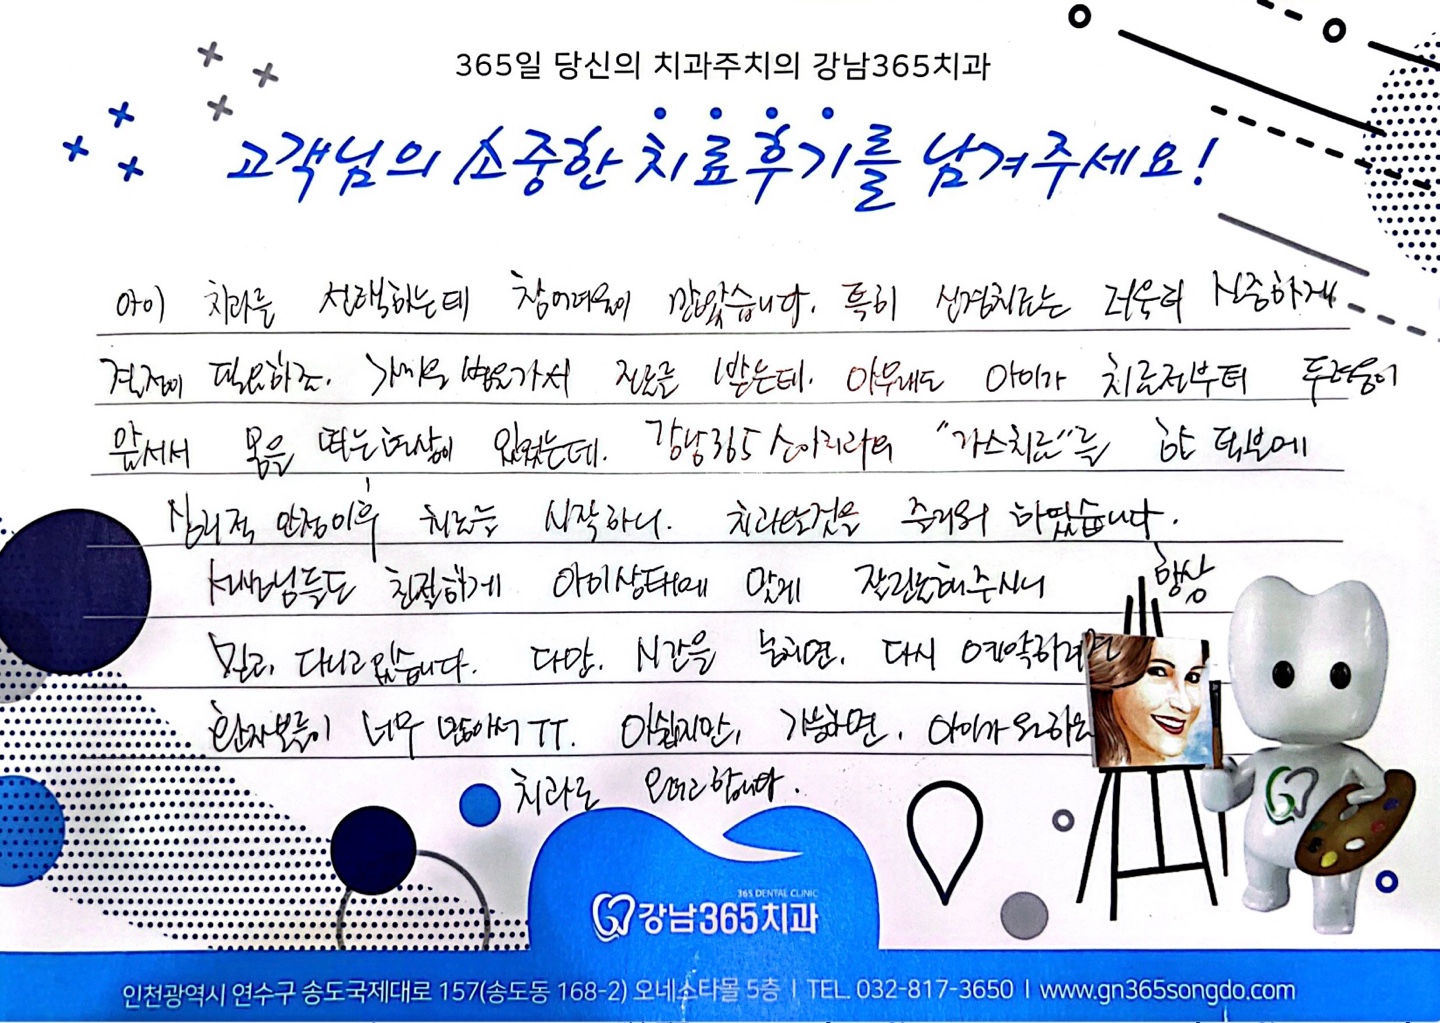 365일 당신의 치과주치의 강남365치과
고객님의 소중한 치료후기를 남겨주세요!
아이 치과를 선택하는데 참 어려움이 많았습니다. 특히 신경치료는 더욱더 신중하게
결정이 필요하죠. 가까운 병원가서 진료를 받는데. 아무래도 아이가 치료전부터 두려움이
앞서서 몸을 떠는 현상이 있었는데. 강남365 소아치과의 "가스치료"를 한 덕분에
심리적 안정이후 치료를 시작하니. 치과라는것을 즐거워 하였습니다.
선생님들도 친절하게 아이상태에 맞게 잘진료해주시니 항상
믿고, 다니고 있습니다. 다만, 시간을 놓치면, 다시 예약하려면
환자분들이 너무 많아서 ㅠㅠ. 아쉽지만, 가능하면, 아이가 원하는
치과로 오려고 합니다.
365 DENTAL CLINIC
강남365치과
인천광역시 연수구 송도국제대로 157(송도동 168-2) 오네스타몰 5층 | TEL. 032-817-3650 | www.gn365songdo.com